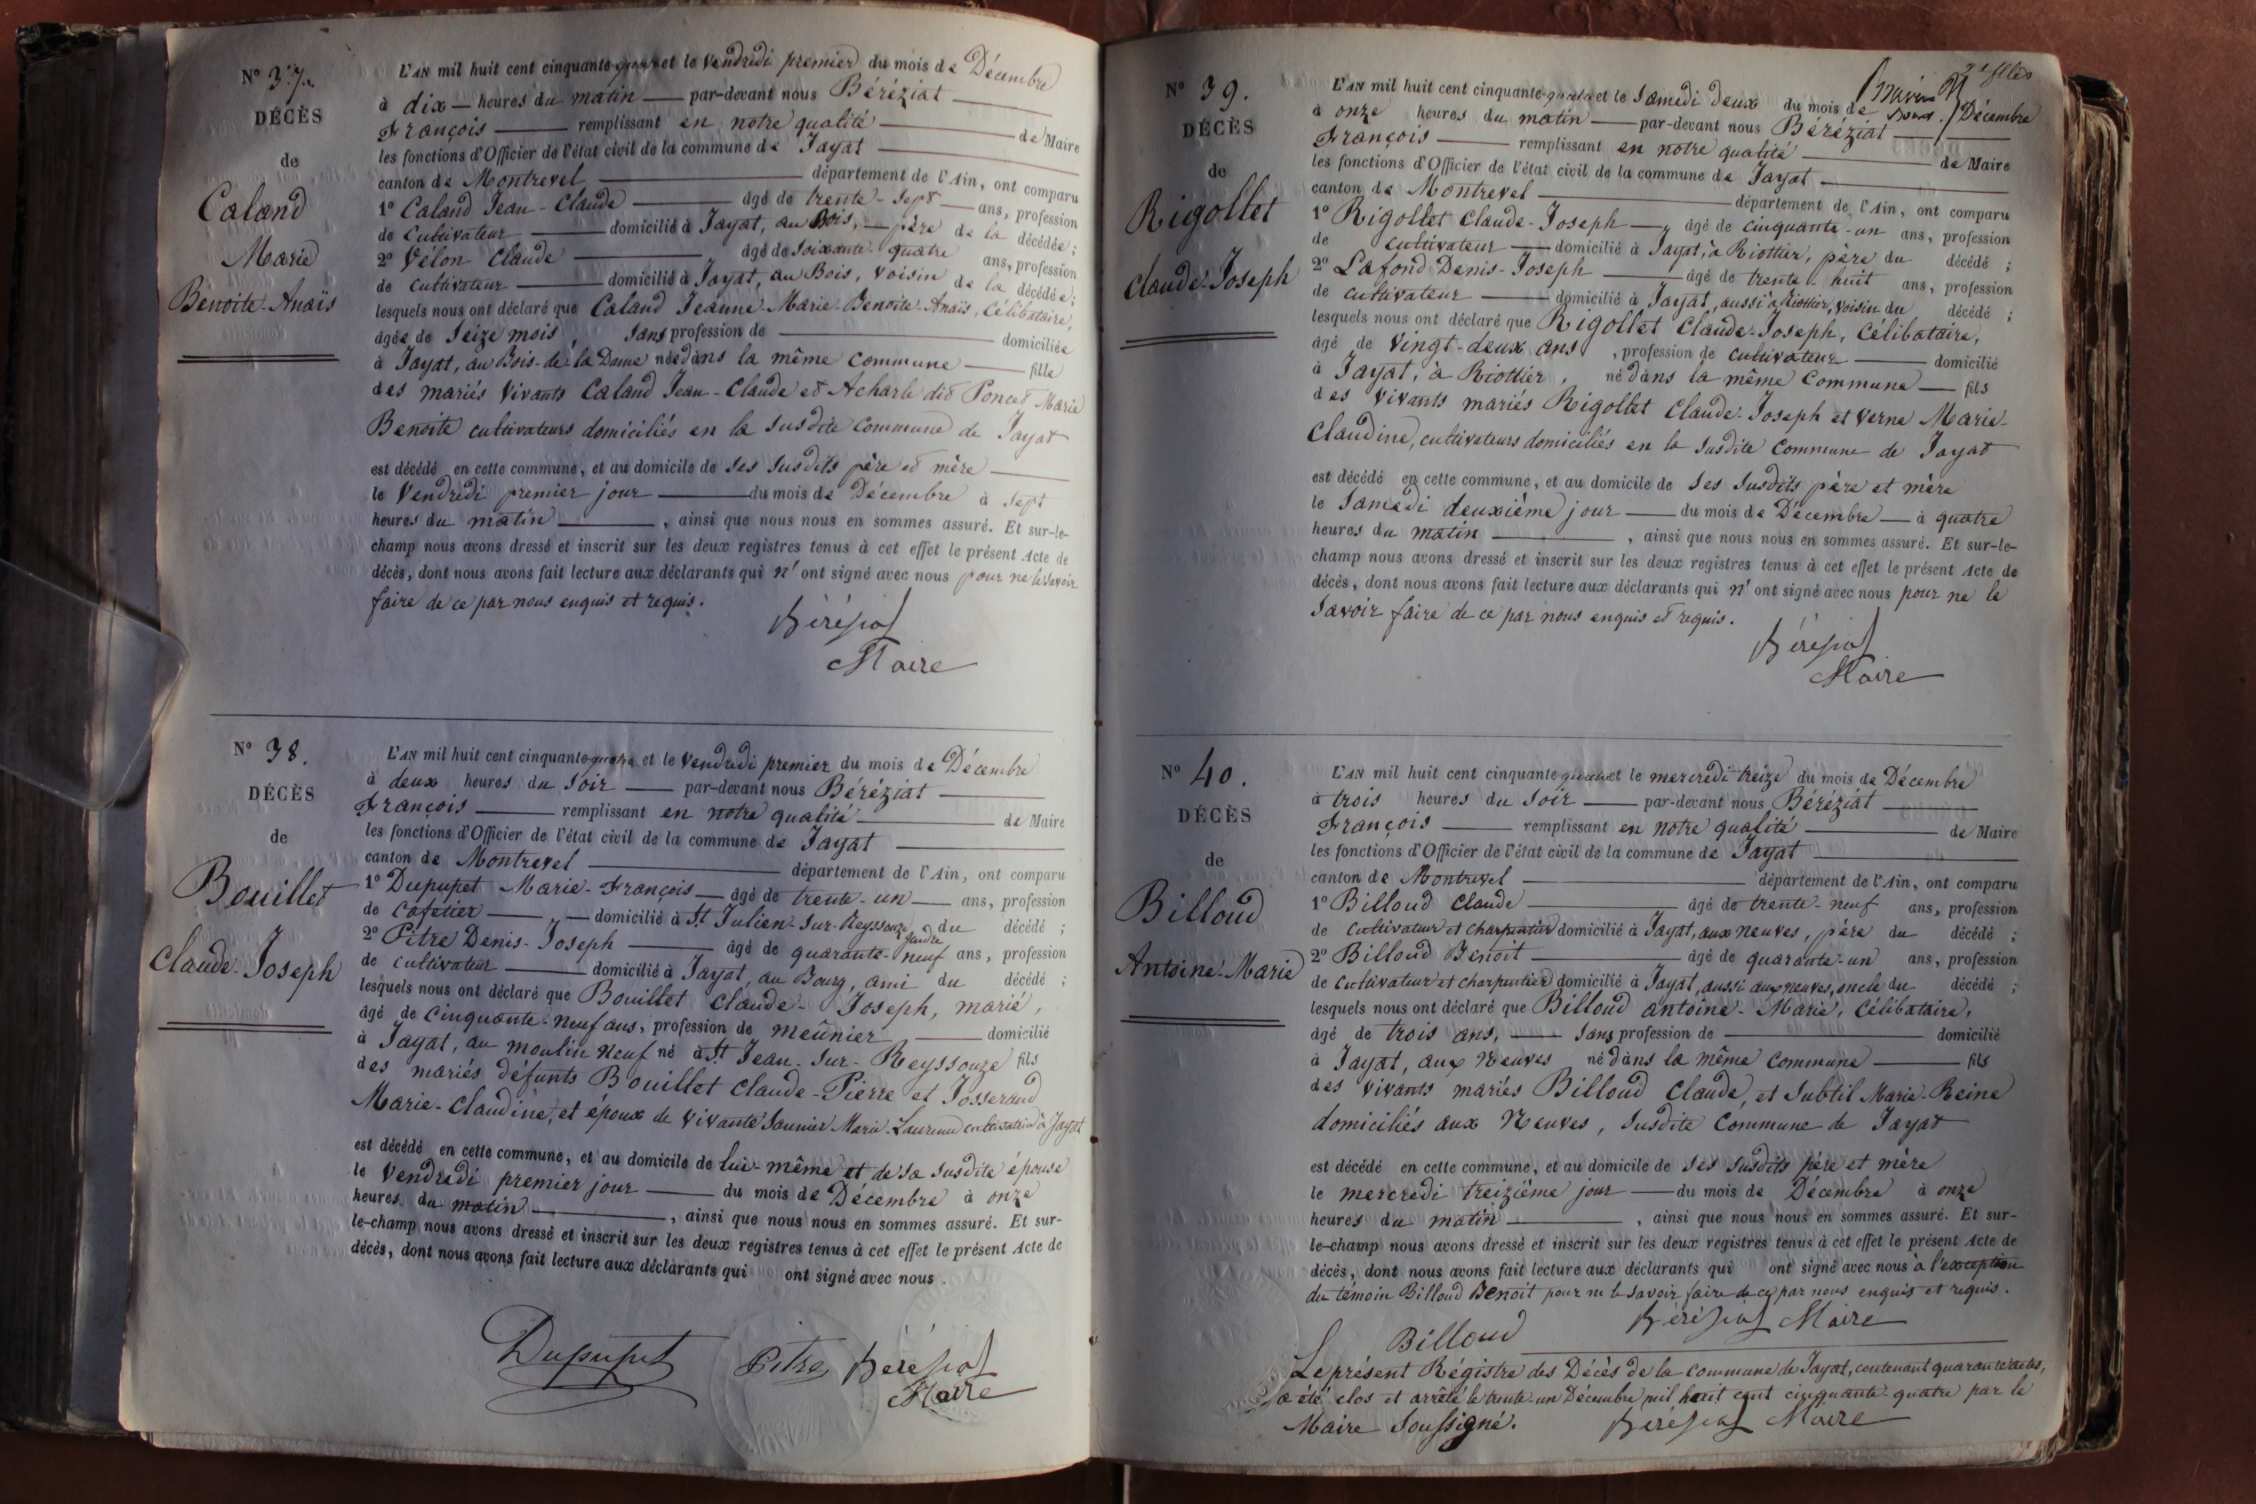 N° 37.
DÉCÈS
de
Caland
Marie
Benoîte-Anaïs
L'AN mil huit cent cinquante quatre et le vendredi premier du mois de Décembre
à dix heures du matin par-devant nous Béréziat
François remplissant en notre qualité de Maire
les fonctions d'Officier de l'état civil de la commune de Jayat
canton de Montrevel département de l'Ain, ont comparu
1° Caland Jean-Claude âgé de trente-sept ans, profession
de cultivateur domicilié à Jayat, au Bois, père de la décédée ;
2° Vélon Claude âgé de soixante-quatre ans, profession
de cultivateur domicilié à Jayat, au Bois, voisin de la décédée ;
lesquels nous ont déclaré que Caland Jeanne-Marie-Benoîte-Anaïs, Célibataire,
âgée de seize mois, sans profession de domiciliée
à Jayat, au Bois-de-la Dame née dans la même commune fille
des mariés vivants Caland Jean-Claude et Acharle dit Poncet Marie
Benoîte cultivateurs domiciliés en la susdite commune de Jayat
est décédé en cette commune, et au domicile de ses susdits père et mère
le vendredi premier jour du mois de Décembre à sept
heures du matin, ainsi que nous nous en sommes assuré. Et sur-le-
champ nous avons dressé et inscrit sur les deux registres tenus à cet effet le présent Acte de
décès, dont nous avons fait lecture aux déclarants qui n'ont signé avec nous pour ne le savoir
faire de ce par nous enquis et requis.
Béréziat
Maire
N° 38.
DÉCÈS
de
Bouillet
Claude-Joseph
L'AN mil huit cent cinquante quatre et le vendredi premier du mois de Décembre
à deux heures du soir par-devant nous Béréziat
François remplissant en notre qualité de Maire
les fonctions d'Officier de l'état civil de la commune de Jayat
canton de Montrevel département de l'Ain, ont comparu
1° Dupupet Marie-François âgé de trente-un ans, profession
de cafetier domicilié à St Julien-sur-Reyssouze gendre du décédé ;
2° Pitre Denis-Joseph âgé de quarante-neuf ans, profession
de cultivateur domicilié à Jayat, au Bourg, ami du décédé ;
lesquels nous ont déclaré que Bouillet Claude-Joseph, marié,
âgé de cinquante-neuf ans, profession de meûnier domicilié
à Jayat, au moulin neuf né à St Jean-sur-Reyssouze fils
des mariés défunts Bouillet Claude-Pierre et Josserand
Marie-Claudine, et époux de vivante Saunier Marie-Laurence cultivatrice à Jayat
est décédé en cette commune, et au domicile de lui-même et de sa susdite épouse
le vendredi premier jour du mois de Décembre à onze
heures du matin, ainsi que nous nous en sommes assuré. Et sur-
le-champ nous avons dressé et inscrit sur les deux registres tenus à cet effet le présent Acte de
décès, dont nous avons fait lecture aux déclarants qui ont signé avec nous.
Dupupet Pitre Béréziat
Maire
N° 39.
DÉCÈS
de
Rigollet
Claude-Joseph
L'AN mil huit cent cinquante quatre et le samedi deux du mois de Décembre
à onze heures du matin par-devant nous Béréziat
François remplissant en notre qualité de Maire
les fonctions d'Officier de l'état civil de la commune de Jayat
canton de Montrevel département de l'Ain, ont comparu
1° Rigollet Claude-Joseph, âgé de cinquante-un ans, profession
de cultivateur domicilié à Jayat, à Riottier, père du décédé ;
2° Lafond Denis-Joseph âgé de trente-huit ans, profession
de cultivateur domicilié à Jayat, aussi à Riottier, voisin du décédé ;
lesquels nous ont déclaré que Rigollet Claude-Joseph, Célibataire,
âgé de vingt-deux ans, profession de cultivateur domicilié
à Jayat, à Riottier, né dans la même commune fils
des vivants mariés Rigollet Claude-Joseph et Verne Marie-
Claudine, cultivateurs domiciliés en la susdite commune de Jayat
est décédé en cette commune, et au domicile de ses susdits père et mère
le samedi deuxième jour du mois de Décembre à quatre
heures du matin, ainsi que nous nous en sommes assuré. Et sur-le-
champ nous avons dressé et inscrit sur les deux registres tenus à cet effet le présent Acte de
décès, dont nous avons fait lecture aux déclarants qui n'ont signé avec nous pour ne le
savoir faire de ce par nous enquis et requis.
Béréziat
Maire
N° 40.
DÉCÈS
de
Billoud
Antoine-Marie
L'AN mil huit cent cinquante quatre et le mercredi treize du mois de Décembre
à trois heures du soir par-devant nous Béréziat
François remplissant en notre qualité de Maire
les fonctions d'Officier de l'état civil de la commune de Jayat
canton de Montrevel département de l'Ain, ont comparu
1° Billoud Claude âgé de trente-neuf ans, profession
de cultivateur et charpentier domicilié à Jayat, aux neuves, père du décédé ;
2° Billoud Benoit âgé de quarante-un ans, profession
de cultivateur et charpentier domicilié à Jayat, aussi aux neuves, oncle du décédé ;
lesquels nous ont déclaré que Billoud antoine-Marie, Célibataire,
âgé de trois ans, sans profession de domicilié
à Jayat, aux Neuves né dans la même commune fils
des vivants mariés Billoud Claude, et Subtil Marie-Reine
domiciliés aux Neuves, susdite commune de Jayat
est décédé en cette commune, et au domicile de ses susdits père et mère
le mercredi treizième jour du mois de Décembre à onze
heures du matin, ainsi que nous nous en sommes assuré. Et sur-
le-champ nous avons dressé et inscrit sur les deux registres tenus à cet effet le présent Acte de
décès, dont nous avons fait lecture aux déclarants qui ont signé avec nous à l'exception
du témoin Billoud Benoit pour ne le savoir faire de ce par nous enquis et requis.
Billoud Béréziat Maire
Le présent Régistre des Décès de la commune de Jayat, contenant quarante actes,
a été clos et arrêté le trente-un Décembre mil huit cent cinquante-quatre par le
Maire soussigné. Béréziat Maire